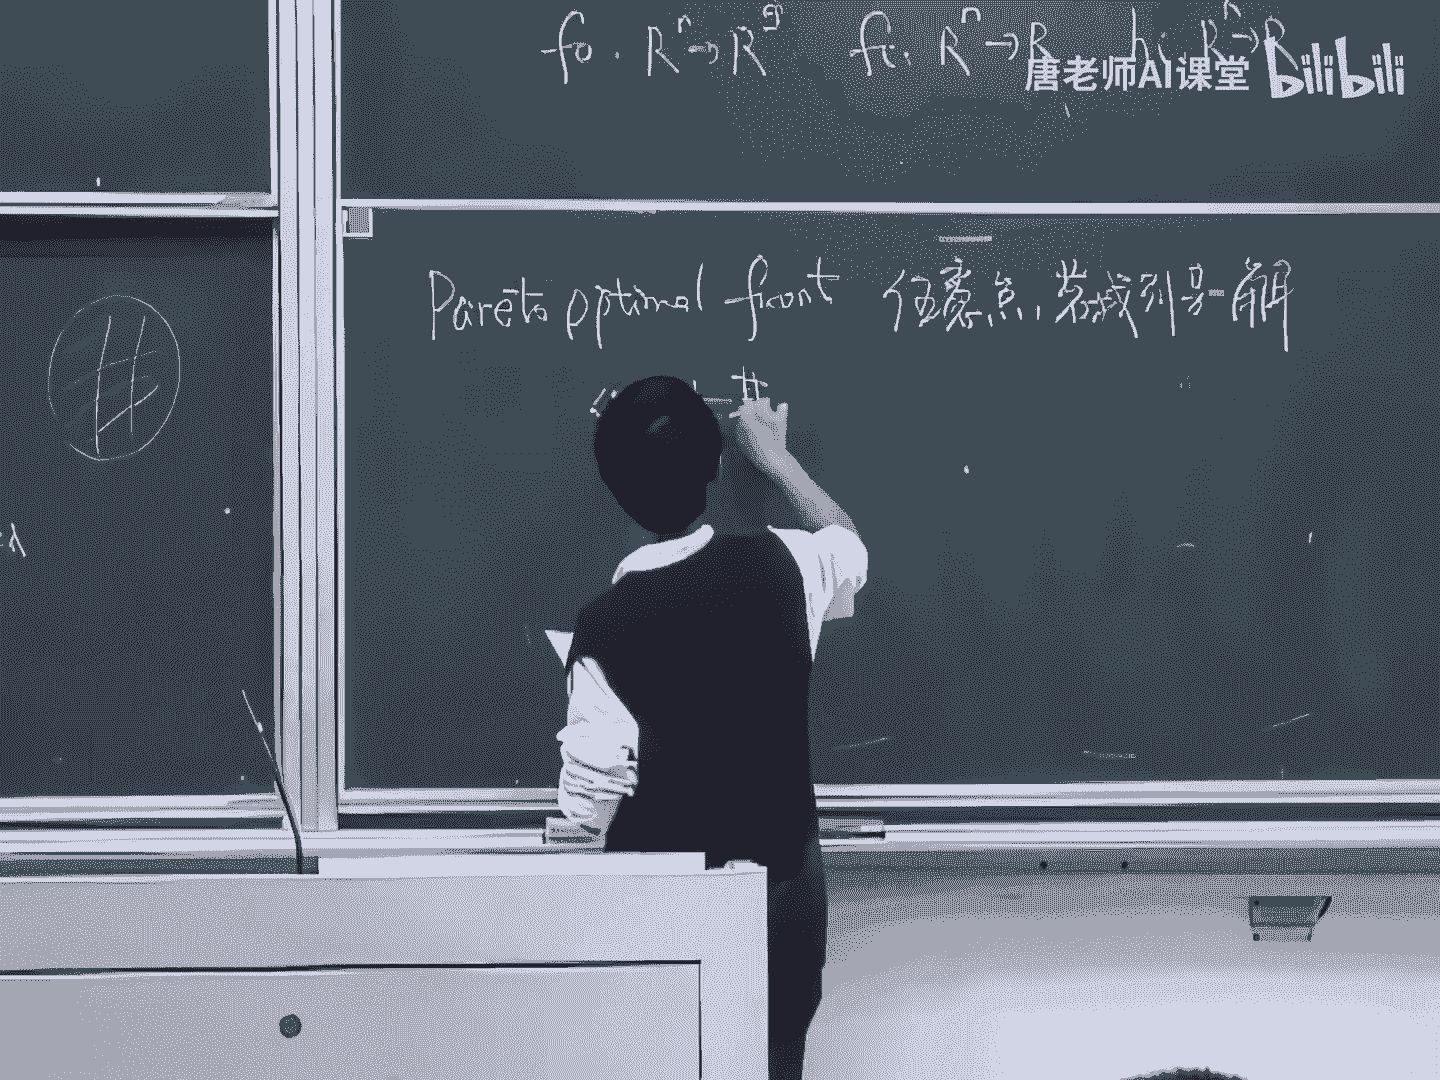 f₀: Rⁿ→R^q fᵢ: Rⁿ→R hᵢ: Rⁿ→R
唐老师AI课堂 bilibili
Pareto optimal front 任意点,若找到另一解
井
λ